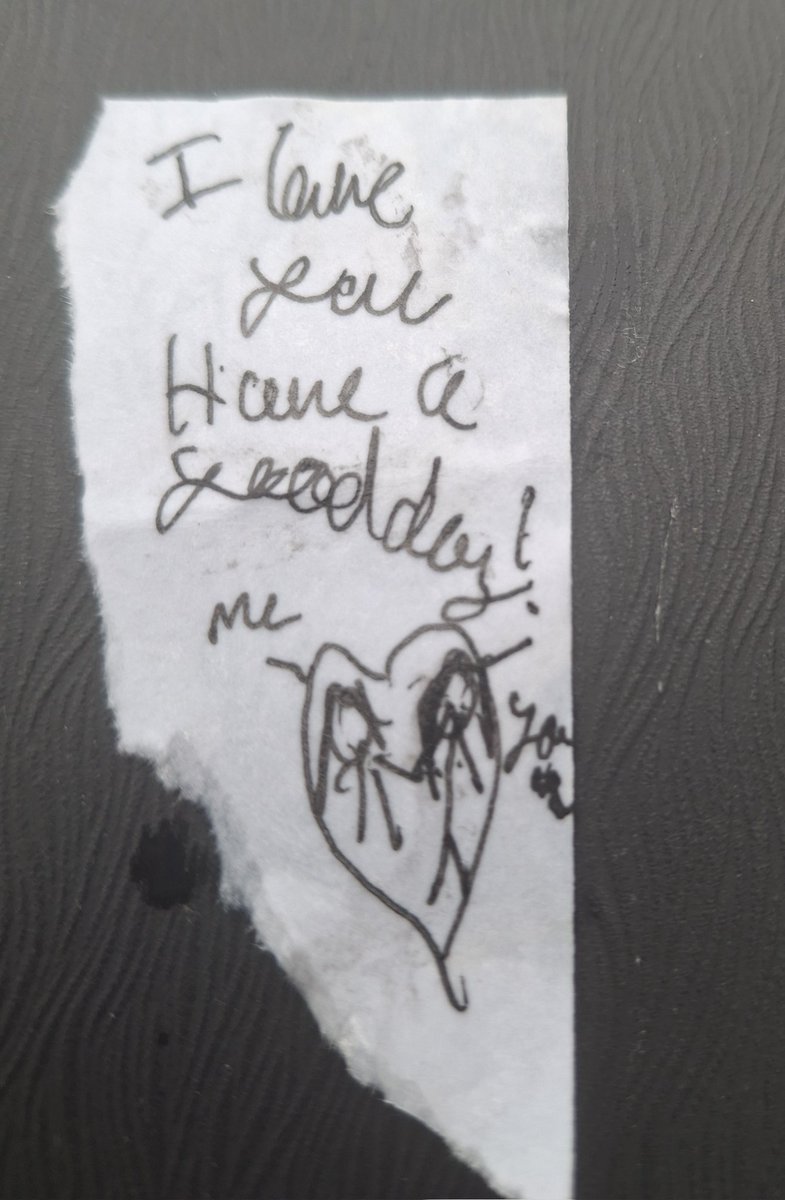 I love
you
Have a
good day!
me
you